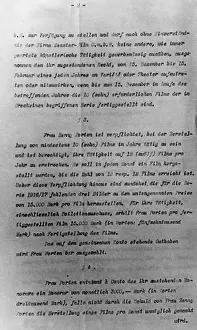 - 2 -
z.B. zur Verfügung zu stellen und darf auch ohne Einverständ-
nis der Firma Messter-Film G.m.b.H. keine andere, wie immer
geartete künstlerische Tätigkeit gewerbsmässig ausüben, ausge-
nommen den ihr zugestandenen Recht, vom 15. Dezember bis 15.
Februar eines jeden Jahres an Varieté oder Theater aufzutre-
ten oder mitzuwirken, wenn bis zum 15. Dezember im Laufe des
betreffenden Jahres die 10 (zehn) erforderlichen Films der in
erscheinen begriffenen Serie fertiggestellt sind.
§ 3.
Frau Henny Porten ist verpflichtet, bei der Herstellung
von mindestens 10 (zehn) Films im Jahre tätig zu sein
und ist berechtigt, ihre Tätigkeit auf 12 (zwölf) Films pro
Jahr zu erstrecken. Es soll in jedem Monat ein Film herge-
stellt werden, bis die Zahl von 10 resp. 12 Films erreicht ist.
Ueber diese Verpflichtung hinaus sind zunächst für die Sai-
son 1916/17 drei Bilder zu dem
von 15.000 Mark pro Film herzustellen. Für ihre Tätigkeit,
einschliesslich Toilettenzuschuss, erhält Frau Porten pro fer-
tiggestellten Film 15.000 Mark (in Worten: fünfzehntausend
Mark) nach Fertigstellung des Films.
Das auf dem gemeinsamen Konto stehende Guthaben
wird Frau Porten bar ausgezahlt.
§ 4.
Frau Porten entnimmt à Conto des ihr zustehenden Ho-
norares ein Honorar von monatlich 3000,-- Mark (in Worten:
dreitausend Mark), falls nicht durch die Schuld von Frau Henny
Porten die Herstellung eines Films pro Monat unmöglich gemacht
wird.